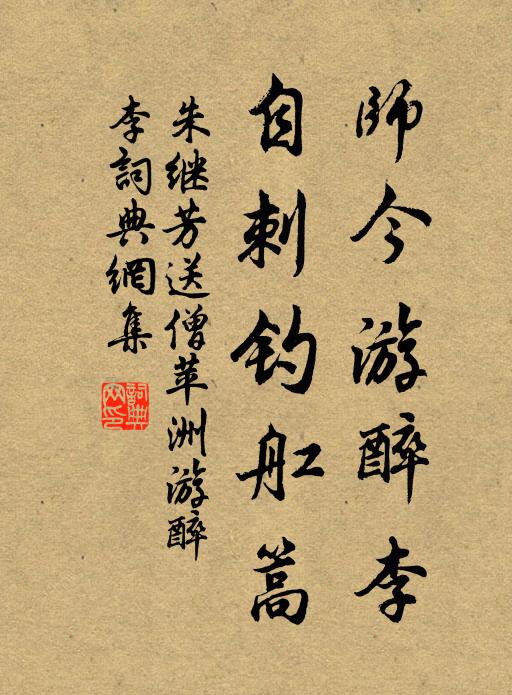 師今游醉李
自刺釣舡篙
朱继芳送僧苹洲游醉
李詞典網集
詞典网印